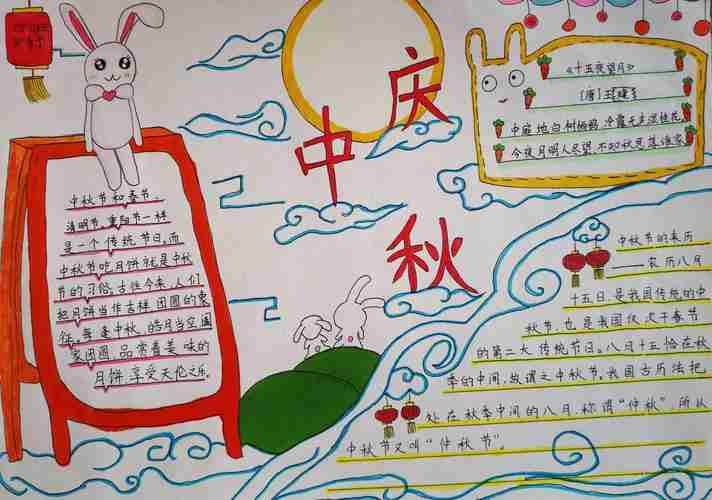 庆
中
秋
《十五夜望月》
[唐]王建
中庭地白树栖鸦,冷露无声湿桂花
今夜月明人尽望,不知秋思落谁家
中秋节和春节、
清明节、重阳节一样
是一个传统节日,而
中秋节吃月饼就是中秋
节的习俗,古往今来,人们
把月饼当作吉祥、团圆的象
征,每逢中秋,皓月当空,阖
家团圆,品尝着美味的
月饼,享受天伦之乐。
中秋节的来历
——农历八月
十五日,是我国传统的中
秋节,也是我国仅次于春节
的第二大传统节日。八月十五恰在秋
季的中间,故谓之中秋节,我国古历法把
处在秋季中间的八月,称谓“仲秋”,所以
中秋节又叫“仲秋节”。